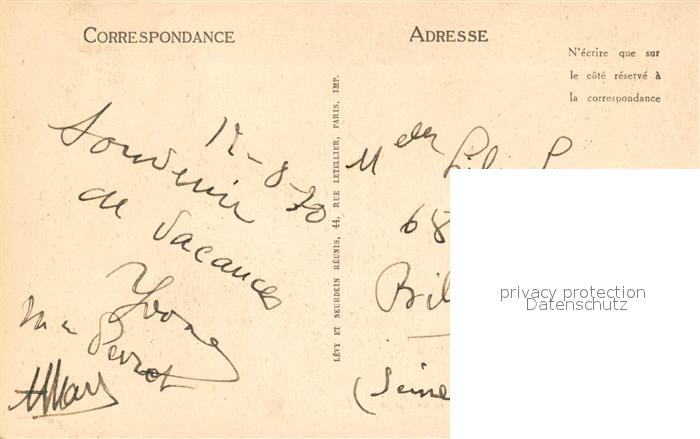 CORRESPONDANCE
ADRESSE
N'écrire que sur
le côté réservé à
la correspondance
12-8-30
Souvenir
de Vacances
Yvonne
Perrot
LÉVY ET NEURDEIN RÉUNIS, 44, RUE LETELLIER, PARIS, IMP.
68
(Seine
privacy protection
Datenschutz